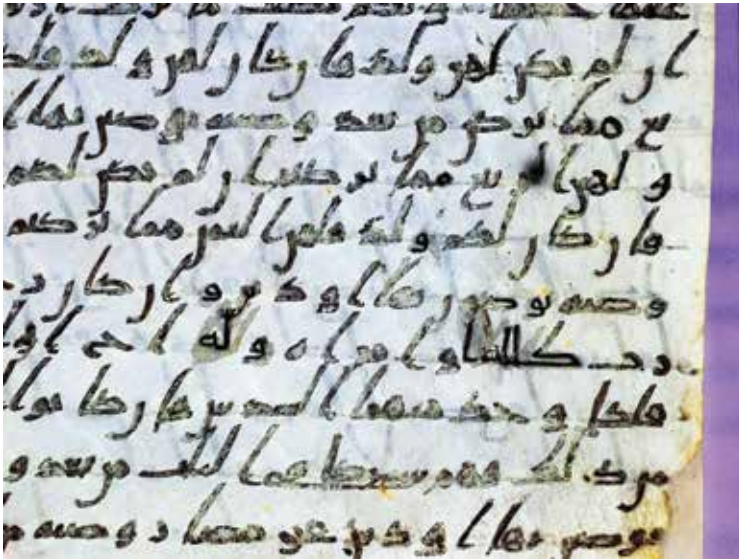 ان لم يكن لهن ولد فان كان لهن ولد فلكم
بع مما تركن من بعد وصية يوصين بها ا
ولهن الربع مما تركتم ان لم يكن لكم
فان كان لكم ولد فلهن الثمن مما تركتم
وصية توصون بها او دين وان كان ر
يورث كللة او امراه وله اخ او ا
فلكل وحد منهما السدس فان كانوا ا
من ذلك فهم شركا في الثلث من بعد و
يوصى بها او دين غير مضار وصية م